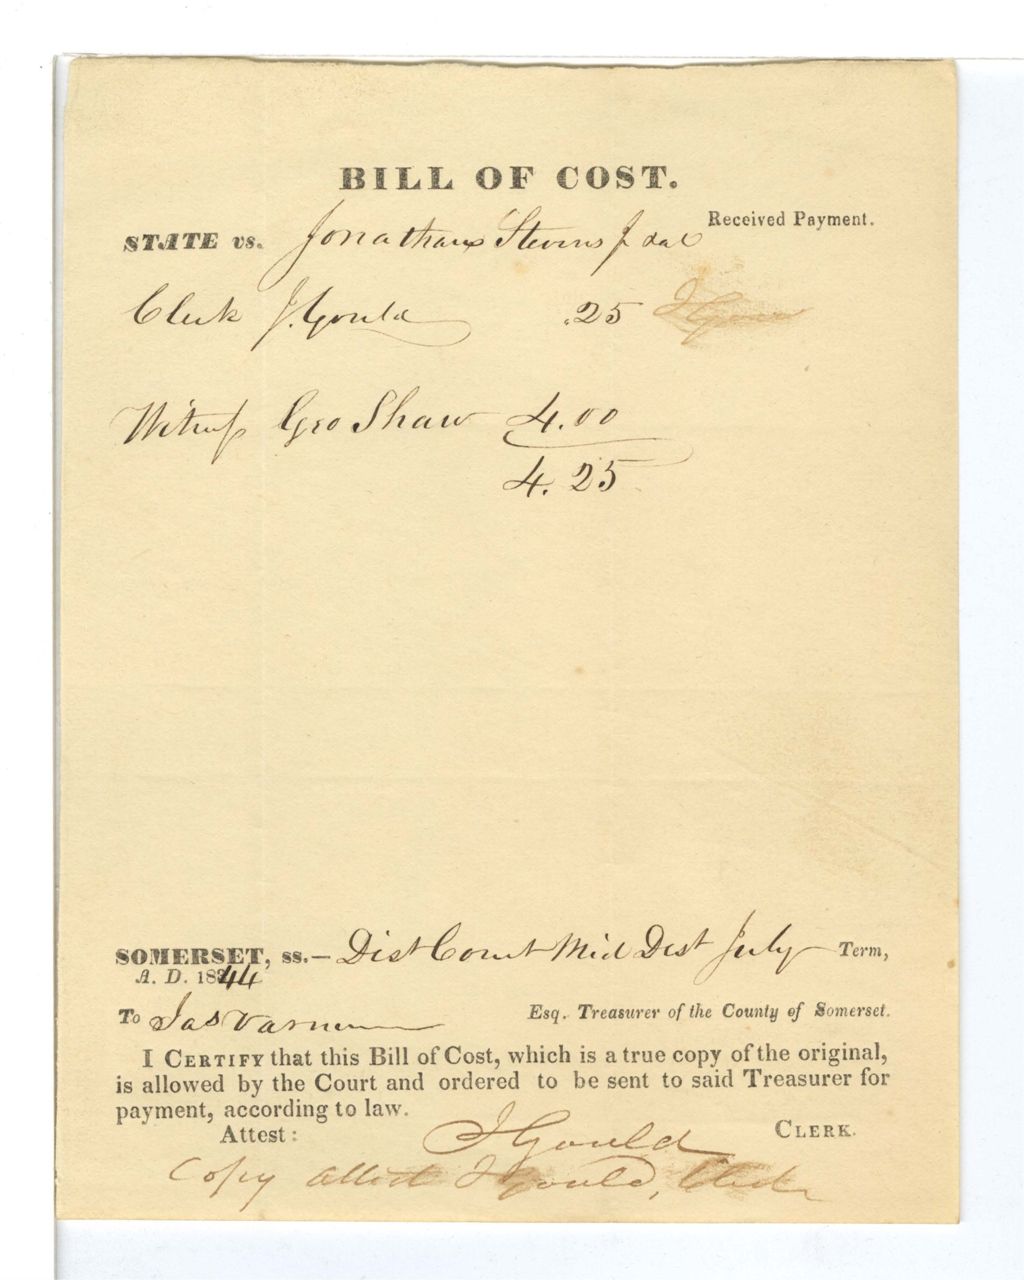 BILL OF COST.
Received Payment.
STATE vs. Jonathan Stevens Jr
Clerk J. Gould .25 J Gould
Witness Geo Shaw 4.00
4.25
SOMERSET, ss.— Dist Court Mid Dist July Term,
A. D. 1844
To Jas Varnum Esq. Treasurer of the County of Somerset.
I CERTIFY that this Bill of Cost, which is a true copy of the original,
is allowed by the Court and ordered to be sent to said Treasurer for
payment, according to law.
Attest: J Gould CLERK.
Copy Attest J Gould, Clerk